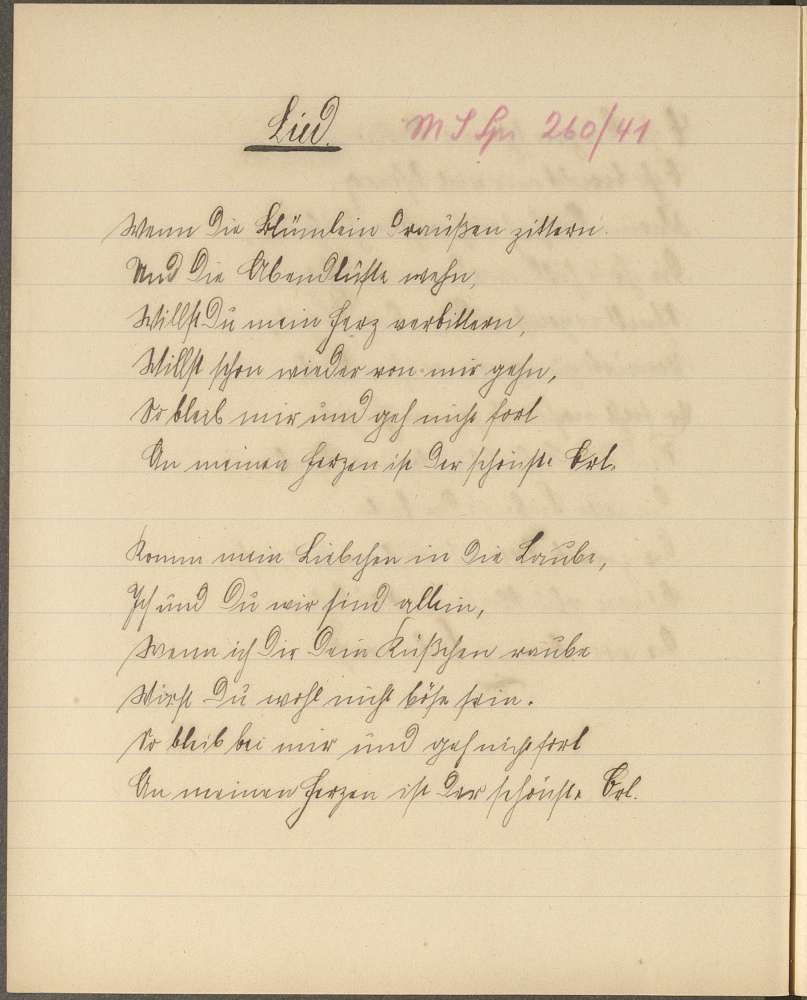 Lied.
260/41
Wenn die Blümlein draußen zittern
Und die Abendlüfte wehn,
Willst Du mein Herz verbittern,
Willst schon wieder von mir gehn,
So bleib mir und geh nicht fort
An meinen Herzen ist der schönste Ort.
Komm mein Liebchen in die Laube,
Ich und Du wir sind allein,
Wenn ich Dir dein Küßchen raube
Wirst Du wohl nicht böse sein.
So bleib bei mir und geh nicht fort
An meinen Herzen ist der schönste Ort.